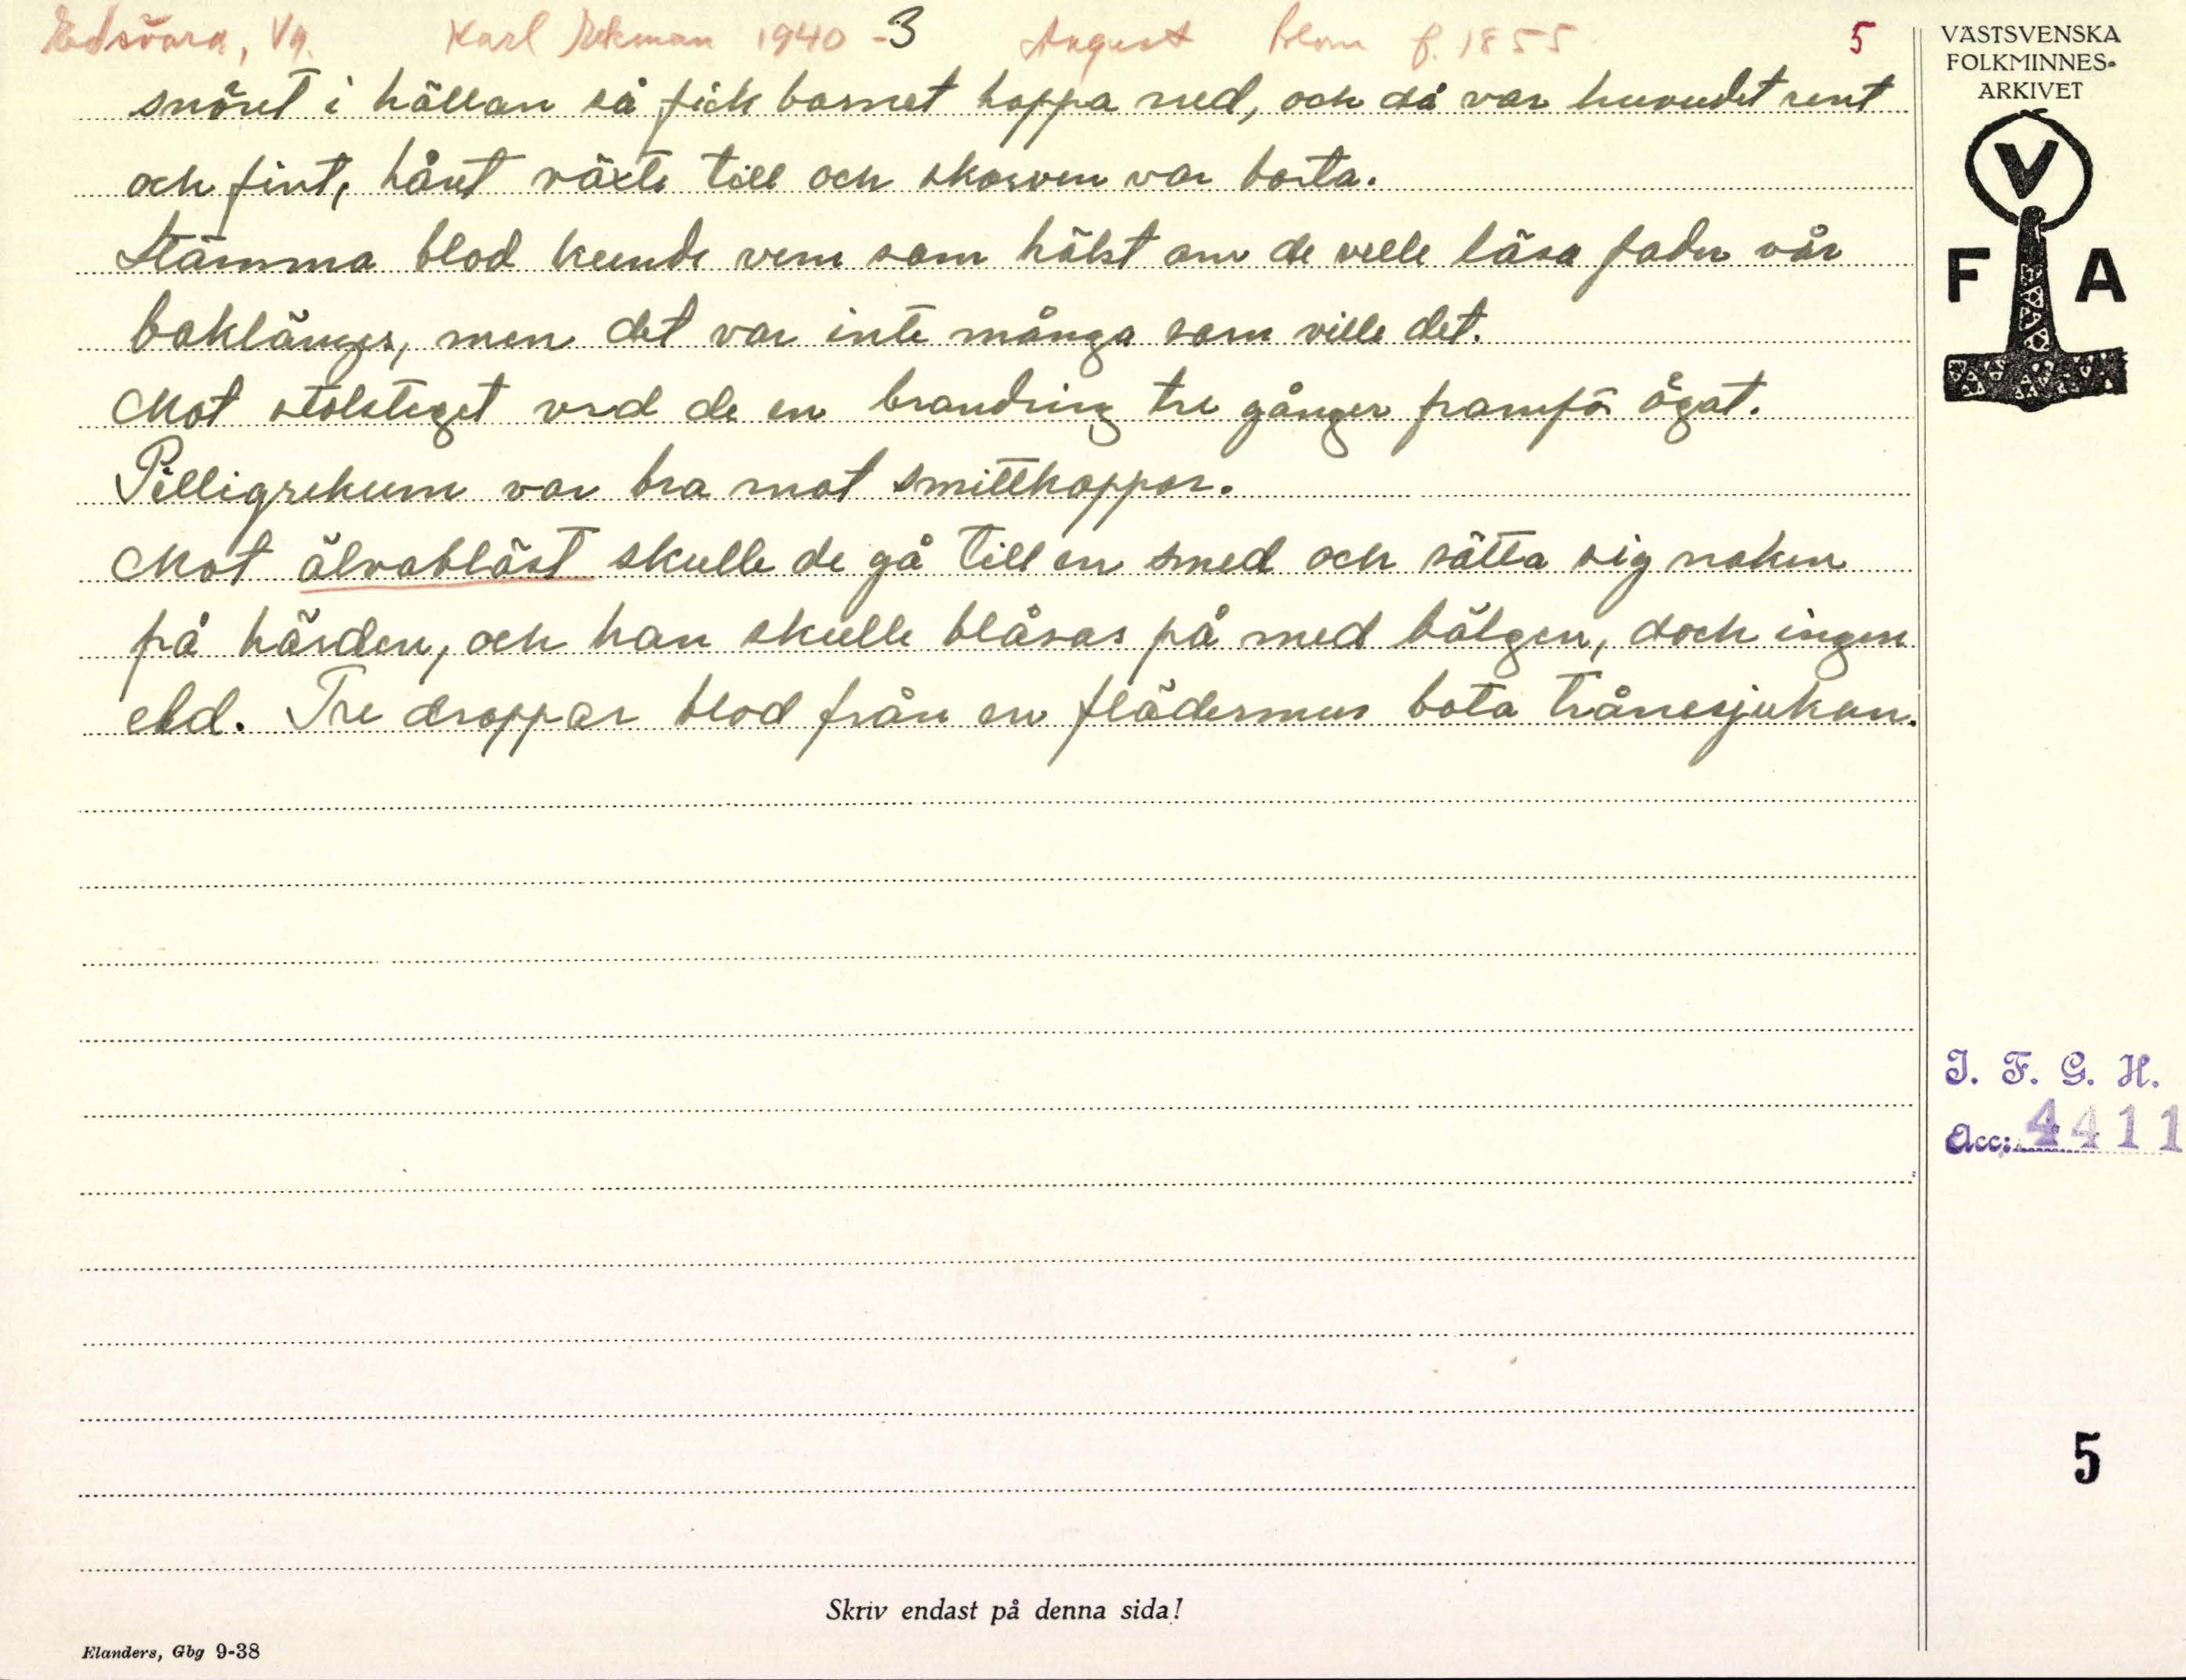 Edsvära, Vg. Karl Ekman 1940 -3 August Blom f. 1855 5
snöret i hällan så fick barnet hoppa ned, och då var huvudet rent
och fint, håret växte till och skorven var borta.
Stämma blod kunde vem som hälst om de ville läsa fader vår
baklänges, men det var inte många som ville det.
Mot stolsteget vred de en brandring tre gånger framför ögat.
Pilligrekum var bra mot smittkoppor.
Mot älvabläst skulle de gå till en smed och sätta sig naken
på härden, och han skulle blåsas på med bälgen, doch ingen
eld. Tre droppar blod från en flädermus bota trånesjukan.
VÄSTSVENSKA
FOLKMINNES-
ARKIVET
V
F A
I. F. G. H.
Acc: 4411
5
Skriv endast på denna sida!
Elanders, Gbg 9-38